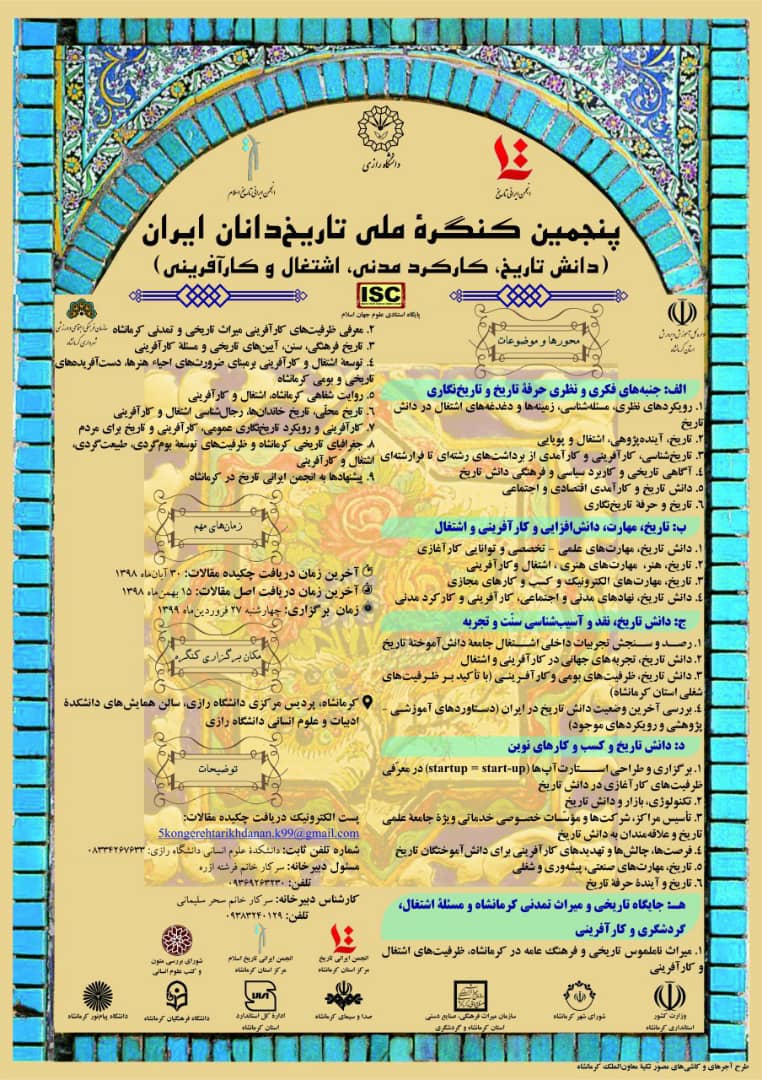 دانشگاه رازی
انجمن ایرانی تاریخ
انجمن ایرانی تاریخ اسلام
پنجمین کنگرهٔ ملی تاریخ‌دانان ایران
(دانش تاریخ، کارکرد مدنی، اشتغال و کارآفرینی)
ISC
پایگاه استنادی علوم جهان اسلام
اداره کل آموزش و پرورش
استان کرمانشاه
سازمان فرهنگی اجتماعی و ورزشی
شهرداری کرمانشاه
محورها و موضوعات
الف: جنبه‌های فکری و نظری حرفهٔ تاریخ و تاریخ‌نگاری
۱. رویکردهای نظری، مسئله‌شناسی، زمینه‌ها و دغدغه‌های اشتغال در دانش
تاریخ
۲. تاریخ، آینده‌پژوهی، اشتغال و پویایی
۳. تاریخ‌شناسی، کارآفرینی و کارآمدی از برداشت‌های رشته‌ای تا فرارشته‌ای
۴. آگاهی تاریخی و کاربرد سیاسی و فرهنگی دانش تاریخ
۵. دانش تاریخ و کارآمدی اقتصادی و اجتماعی
۶. تاریخ و حرفهٔ تاریخ‌نگاری
ب: تاریخ، مهارت، دانش‌افزایی و کارآفرینی و اشتغال
۱. دانش تاریخ، مهارت‌های علمی - تخصصی و توانایی کارآغازی
۲. تاریخ، هنر، مهارت‌های هنری ، اشتغال وکارآفرینی
۳. تاریخ، مهارت‌های الکترونیک و کسب و کارهای مجازی
۴. دانش تاریخ، نهادهای مدنی و اجتماعی، کارآفرینی و کارکرد مدنی
ج: دانش تاریخ، نقد و آسیب‌شناسی سنّت و تجربه
۱. رصد و سنجش تجربیات داخلی اشتغال جامعهٔ دانش‌آموختهٔ تاریخ
۲. دانش تاریخ، تجربه‌های جهانی در کارآفرینی و اشتغال
۳. دانش تاریخ، ظرفیت‌های بومی و کارآفرینی (با تأکید بر ظرفیت‌های
شغلی استان کرمانشاه)
۴. بررسی آخرین وضعیت دانش تاریخ در ایران (دستاوردهای آموزشی -
پژوهشی و رویکردهای موجود)
د: دانش تاریخ و کسب و کارهای نوین
۱. برگزاری و طراحی استارت‌آپ‌ها (startup = start-up) در معرّفی
ظرفیت‌های کارآغازی در دانش تاریخ
۲. تکنولوژی، بازار و دانش تاریخ
۳. تأسیس مراکز، شرکت‌ها و مؤسّسات خصوصی خدماتی ویژهٔ جامعهٔ علمی
تاریخ و علاقه‌مندان به دانش تاریخ
۴. فرصت‌ها، چالش‌ها و تهدیدهای کارآفرینی برای دانش‌آموختگان تاریخ
۵. تاریخ، مهارت‌های صنعتی، پیشه‌وری و شغلی
۶. تاریخ و آیندهٔ حرفهٔ تاریخ
هـ: جایگاه تاریخی و میراث تمدنی کرمانشاه و مسئلهٔ اشتغال،
گردشگری و کارآفرینی
۱. میراث ناملموس تاریخی و فرهنگ عامه در کرمانشاه، ظرفیت‌های اشتغال
و کارآفرینی
۲. معرفی ظرفیت‌های کارآفرینی میراث تاریخی و تمدنی کرمانشاه
۳. تاریخ فرهنگی، سنن، آیین‌های تاریخی و مسئلهٔ کارآفرینی
۴. توسعهٔ اشتغال و کارآفرینی برمبنای ضرورت‌های احیاء هنرها، دست‌آفریده‌های
تاریخی و بومی کرمانشاه
۵. روایت شفاهی کرمانشاه، اشتغال و کارآفرینی
۶. تاریخ محلّی، تاریخ خاندان‌ها، رجال‌شناسی اشتغال و کارآفرینی
۷. کارآفرینی و رویکرد تاریخ‌نگاری عمومی، کارآفرینی و تاریخ برای مردم
۸. جغرافیای تاریخی کرمانشاه و ظرفیت‌های توسعهٔ بوم‌گردی، طبیعت‌گردی،
اشتغال و کارآفرینی
۹. پیشنهادها به انجمن ایرانی تاریخ در کرمانشاه
زمان‌های مهم
آخرین زمان دریافت چکیده مقالات: ۳۰ آبان‌ماه ۱۳۹۸
آخرین زمان دریافت اصل مقالات: ۱۵ بهمن‌ماه ۱۳۹۸
زمان برگزاری: چهارشنبه ۲۷ فروردین‌ماه ۱۳۹۹
مکان برگزاری کنگره
کرمانشاه، پردیس مرکزی دانشگاه رازی، سالن همایش‌های دانشکدهٔ
ادبیات و علوم انسانی دانشگاه رازی
توضیحات
پست الکترونیک دریافت چکیده مقالات:
5kongerehtarikhdanan.k99@gmail.com
شماره تلفن ثابت: دانشکدهٔ علوم انسانی دانشگاه رازی: ۰۸۳۳۴۲۶۷۶۳۳
مسئول دبیرخانه: سرکار خانم فرشته ازره
تلفن: ۰۹۳۶۹۲۶۳۲۳۰
کارشناس دبیرخانه: سرکار خانم سحر سلیمانی
تلفن: ۰۹۳۸۳۲۴۰۱۲۹
انجمن ایرانی تاریخ
مرکز استان کرمانشاه
انجمن ایرانی تاریخ اسلام
مرکز استان کرمانشاه
شورای بررسی متون
و کتب علوم انسانی
وزارت کشور
استانداری کرمانشاه
شورای شهر کرمانشاه
سازمان میراث فرهنگی، صنایع دستی
استان کرمانشاه و گردشگری
صدا و سیمای کرمانشاه
ادارهٔ کل استاندارد
استان کرمانشاه
دانشگاه فرهنگیان کرمانشاه
دانشگاه پیام‌نور کرمانشاه
طرح آجرهای و کاشی‌های مصور تکیهٔ معاون‌الملک کرمانشاه